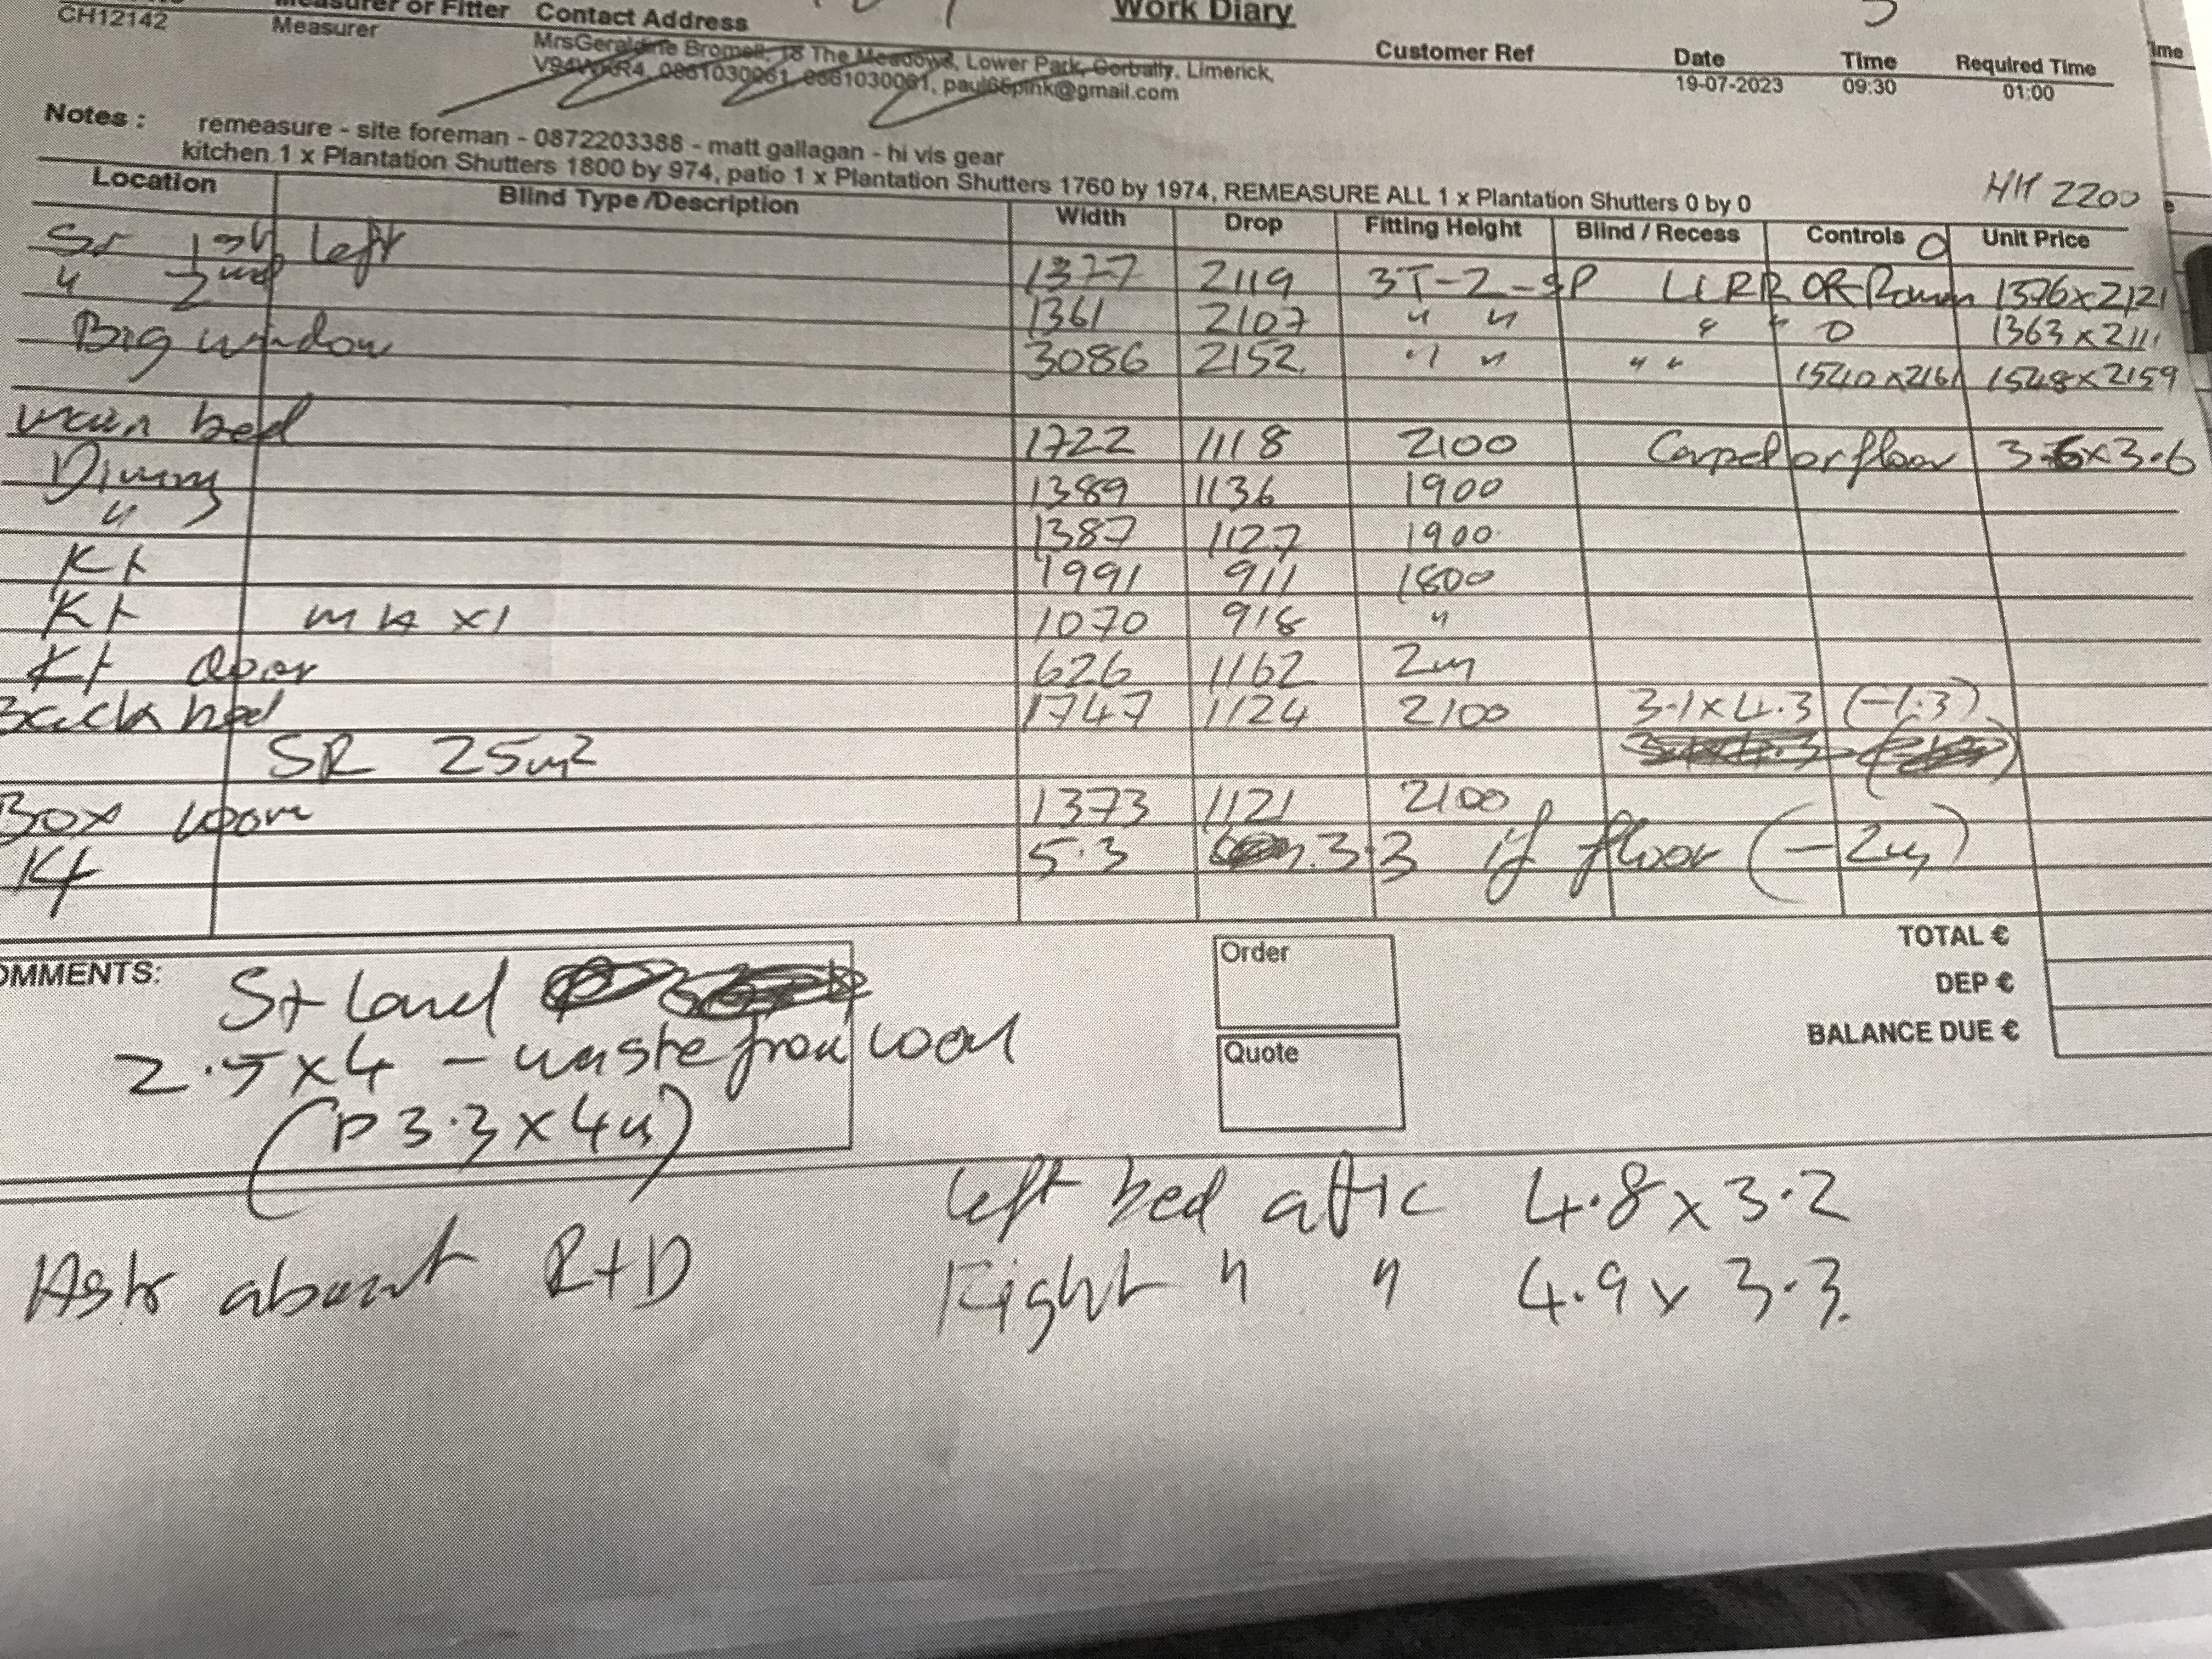 Work Diary
Measurer or Fitter Contact Address
CH12142 Measurer
Customer Ref Date Time Required Time
MrsGeraldine Bromell, 18 The Meadows, Lower Park, Corbally, Limerick,
0861030061, 0861030061, paul65pink@gmail.com
19-07-2023 09:30 01:00
Notes : remeasure - site foreman - 0872203388 - matt gallagan - hi vis gear
kitchen 1 x Plantation Shutters 1800 by 974, patio 1 x Plantation Shutters 1760 by 1974, REMEASURE ALL 1 x Plantation Shutters 0 by 0
HH 2200
Location Blind Type /Description Width Drop Fitting Height Blind / Recess Controls Unit Price
1st left 1377 2119 3T-2-SP LLRR OR Roman 1376x2121
" 2nd 1361 2107 " " " " 0 1363x2111
Big window 3086 2152 " " " " 1540x2161 1548x2159
main bed 1722 1118 2100 Carpet or floor 3.6x3.6
Dining 1389 1136 1900
" 1387 1127 1900
Kt 1991 911 1800
Kt x1 1070 918 "
Kt door 626 1162 2m
Back bed 1747 1124 2100 3.1x4.3 (-1.3)
SR 25m2
Box room 1373 1121 2100
Kt 5.3 3.3 if floor (-2m)
OMMENTS: St Land
2.5x4 - waste from room
(P 3.3x4m)
Order
Quote
TOTAL €
DEP €
BALANCE DUE €
left bed attic 4.8x3.2
Right " " 4.9x3.3.
Ask about R+D